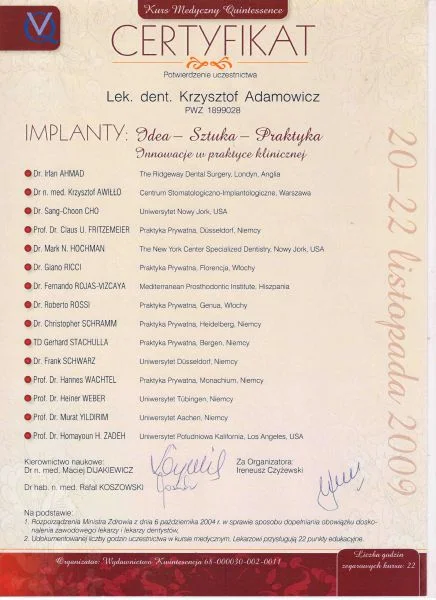 VQ
Kurs Medyczny Quintessence
CERTYFIKAT
Potwierdzenie uczestnictwa
Lek. dent. Krzysztof Adamowicz
PWZ 1899028
IMPLANTY: Idea – Sztuka – Praktyka
Innowacje w praktyce klinicznej
Dr. Irfan AHMAD The Ridgeway Dental Surgery, Londyn, Anglia
Dr n. med. Krzysztof AWIŁŁO Centrum Stomatologiczno-Implantologiczne, Warszawa
Dr. Sang-Choon CHO Uniwersytet Nowy Jork, USA
Prof. Dr. Claus U. FRITZEMEIER Praktyka Prywatna, Düsseldorf, Niemcy
Dr. Mark N. HOCHMAN The New York Center Specialized Dentistry, Nowy Jork, USA
Dr. Giano RICCI Praktyka Prywatna, Florencja, Włochy
Dr. Fernando ROJAS-VIZCAYA Mediterranean Prosthodontic Institute, Hiszpania
Dr. Roberto ROSSI Praktyka Prywatna, Genua, Włochy
Dr. Christopher SCHRAMM Praktyka Prywatna, Heidelberg, Niemcy
TD Gerhard STACHULLA Praktyka Prywatna, Bergen, Niemcy
Dr. Frank SCHWARZ Uniwersytet Düsseldorf, Niemcy
Prof. Dr. Hannes WACHTEL Praktyka Prywatna, Monachium, Niemcy
Prof. Dr. Heiner WEBER Uniwersytet Tübingen, Niemcy
Prof. Dr. Murat YILDIRIM Uniwersytet Aachen, Niemcy
Prof. Dr. Homayoun H. ZADEH Uniwersytet Południowa Kalifornia, Los Angeles, USA
20–22 listopada 2009
Kierownictwo naukowe:
Dr n. med. Maciej DIJAKIEWICZ
Dr hab. n. med. Rafał KOSZOWSKI
Za Organizatora:
Ireneusz Czyżewski
Na podstawie:
1. Rozporządzenia Ministra Zdrowia z dnia 6 października 2004 r. w sprawie sposobu dopełniania obowiązku dosko-
nalenia zawodowego lekarzy i lekarzy dentystów,
2. Udokumentowanej liczby godzin uczestnictwa w kursie medycznym, Lekarzowi przysługują 22 punkty edukacyjne.
Organizator: Wydawnictwo Kwintesencja 68-000030-002-0011
Liczba godzin
zegarowych kursu: 22